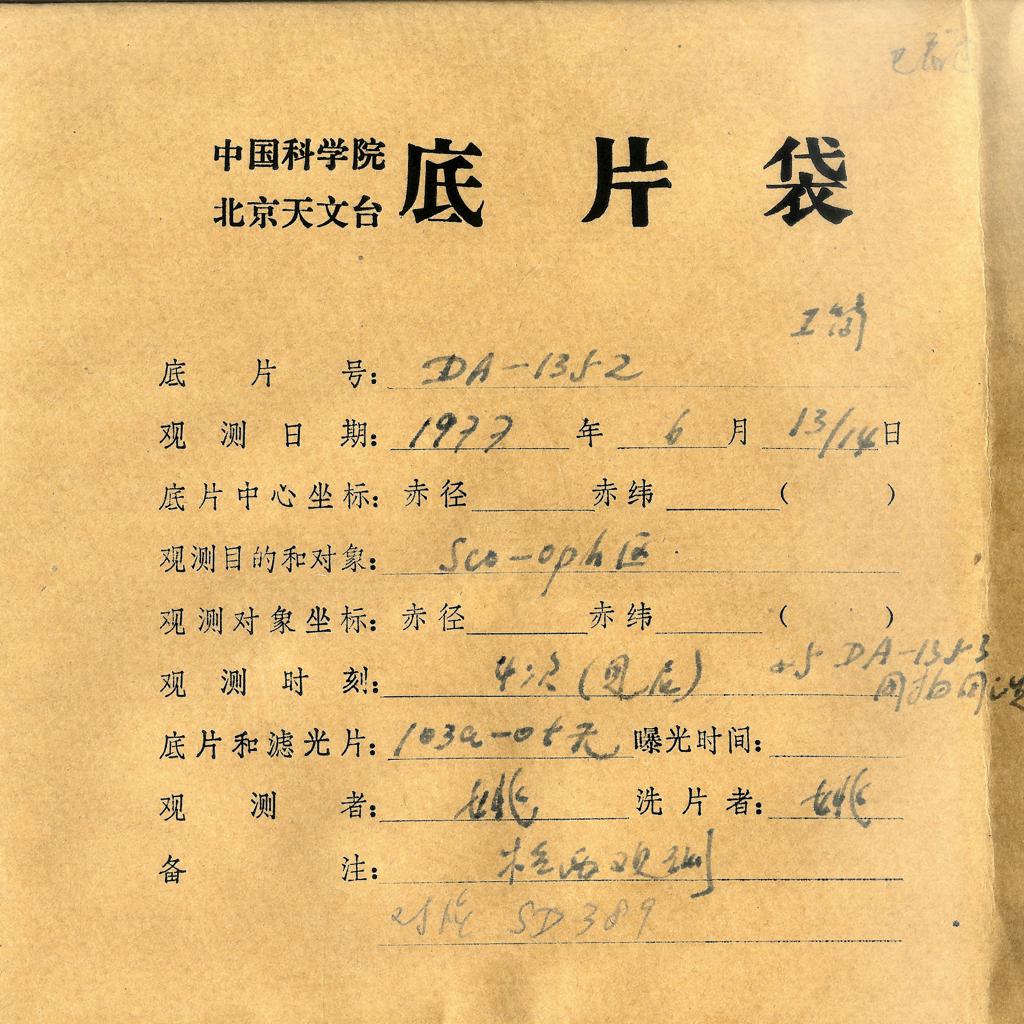 中国科学院
北京天文台
底片袋
I筒
底片号: DA-1352
观测日期: 1977年6月13/14日
底片中心坐标: 赤径 赤纬 ( )
观测目的和对象: Sco-oph区
观测对象坐标: 赤径 赤纬 ( )
观测时刻: 4次 DA-1353
同拍同
底片和滤光片: 103a-0+无 曝光时间:
观测者: 姚 洗片者: 姚
备注: 观测
SD 389